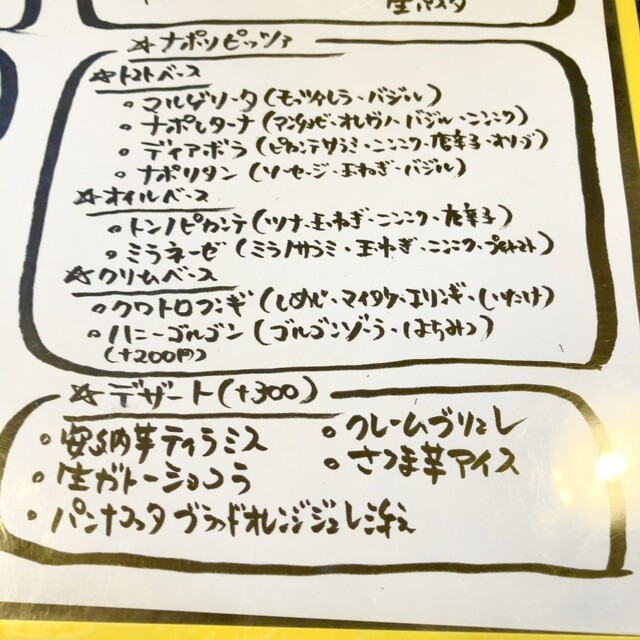 生パスタ
☆ナポリピッツァ
☆トマトベース
○マルゲリータ(モッツァレラ・バジル)
○ナポレターナ(アンチョビ・オレガノ・バジル・ニンニク)
○ディアボラ(ピカンテサラミ・ニンニク・唐辛子・オリーブ)
○ナポリタン(ソーセージ・玉ねぎ・バジル)
☆オイルベース
○トンノピカンテ(ツナ・玉ねぎ・ニンニク・唐辛子)
○ミラネーゼ(ミラノサラミ・玉ねぎ・ニンニク・プチトマト)
☆クリームベース
○クワトロフンギ(しめじ・マイタケ・エリンギ・しいたけ)
○ハニーゴルゴン(ゴルゴンゾーラ・はちみつ)
(+200円)
☆デザート(+300)
○安納芋ティラミス
○クレームブリュレ
○生ガトーショコラ
○さつま芋アイス
○パンナコッタ ブラッドオレンジジュレ添え